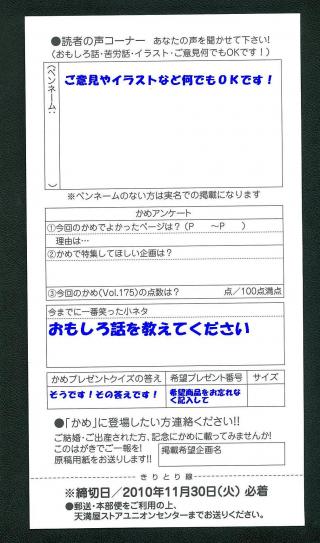 ●読者の声コーナー あなたの声を聞かせて下さい!
(おもしろ話・苦労話・イラスト・ご意見何でもOKです!)
(ペンネーム: )
ご意見やイラストなど何でもOKです!
※ペンネームのない方は実名での掲載になります
かめアンケート
①今回のかめでよかったページは?(P ~P )
理由は…
②かめで特集してほしい企画は?
③今回のかめ(Vol.175)の点数は? 点/100点満点
今までに一番笑った小ネタ
おもしろ話を教えてください
かめプレゼントクイズの答え 希望プレゼント番号 サイズ
そうです!その答えです!
希望商品をお忘れな
く記入して
●「かめ」に登場したい方連絡ください!!
ご結婚・ご出産された方、記念にかめに載ってみませんか!
このはがきでご一報を!
原稿用紙をお送りします!!
掲載希望企画名
きりとり線
※締切日/2010年11月30日(火) 必着
●郵送・本部便をご利用の上、
天満屋ストアユニオンセンターまでお送りください。